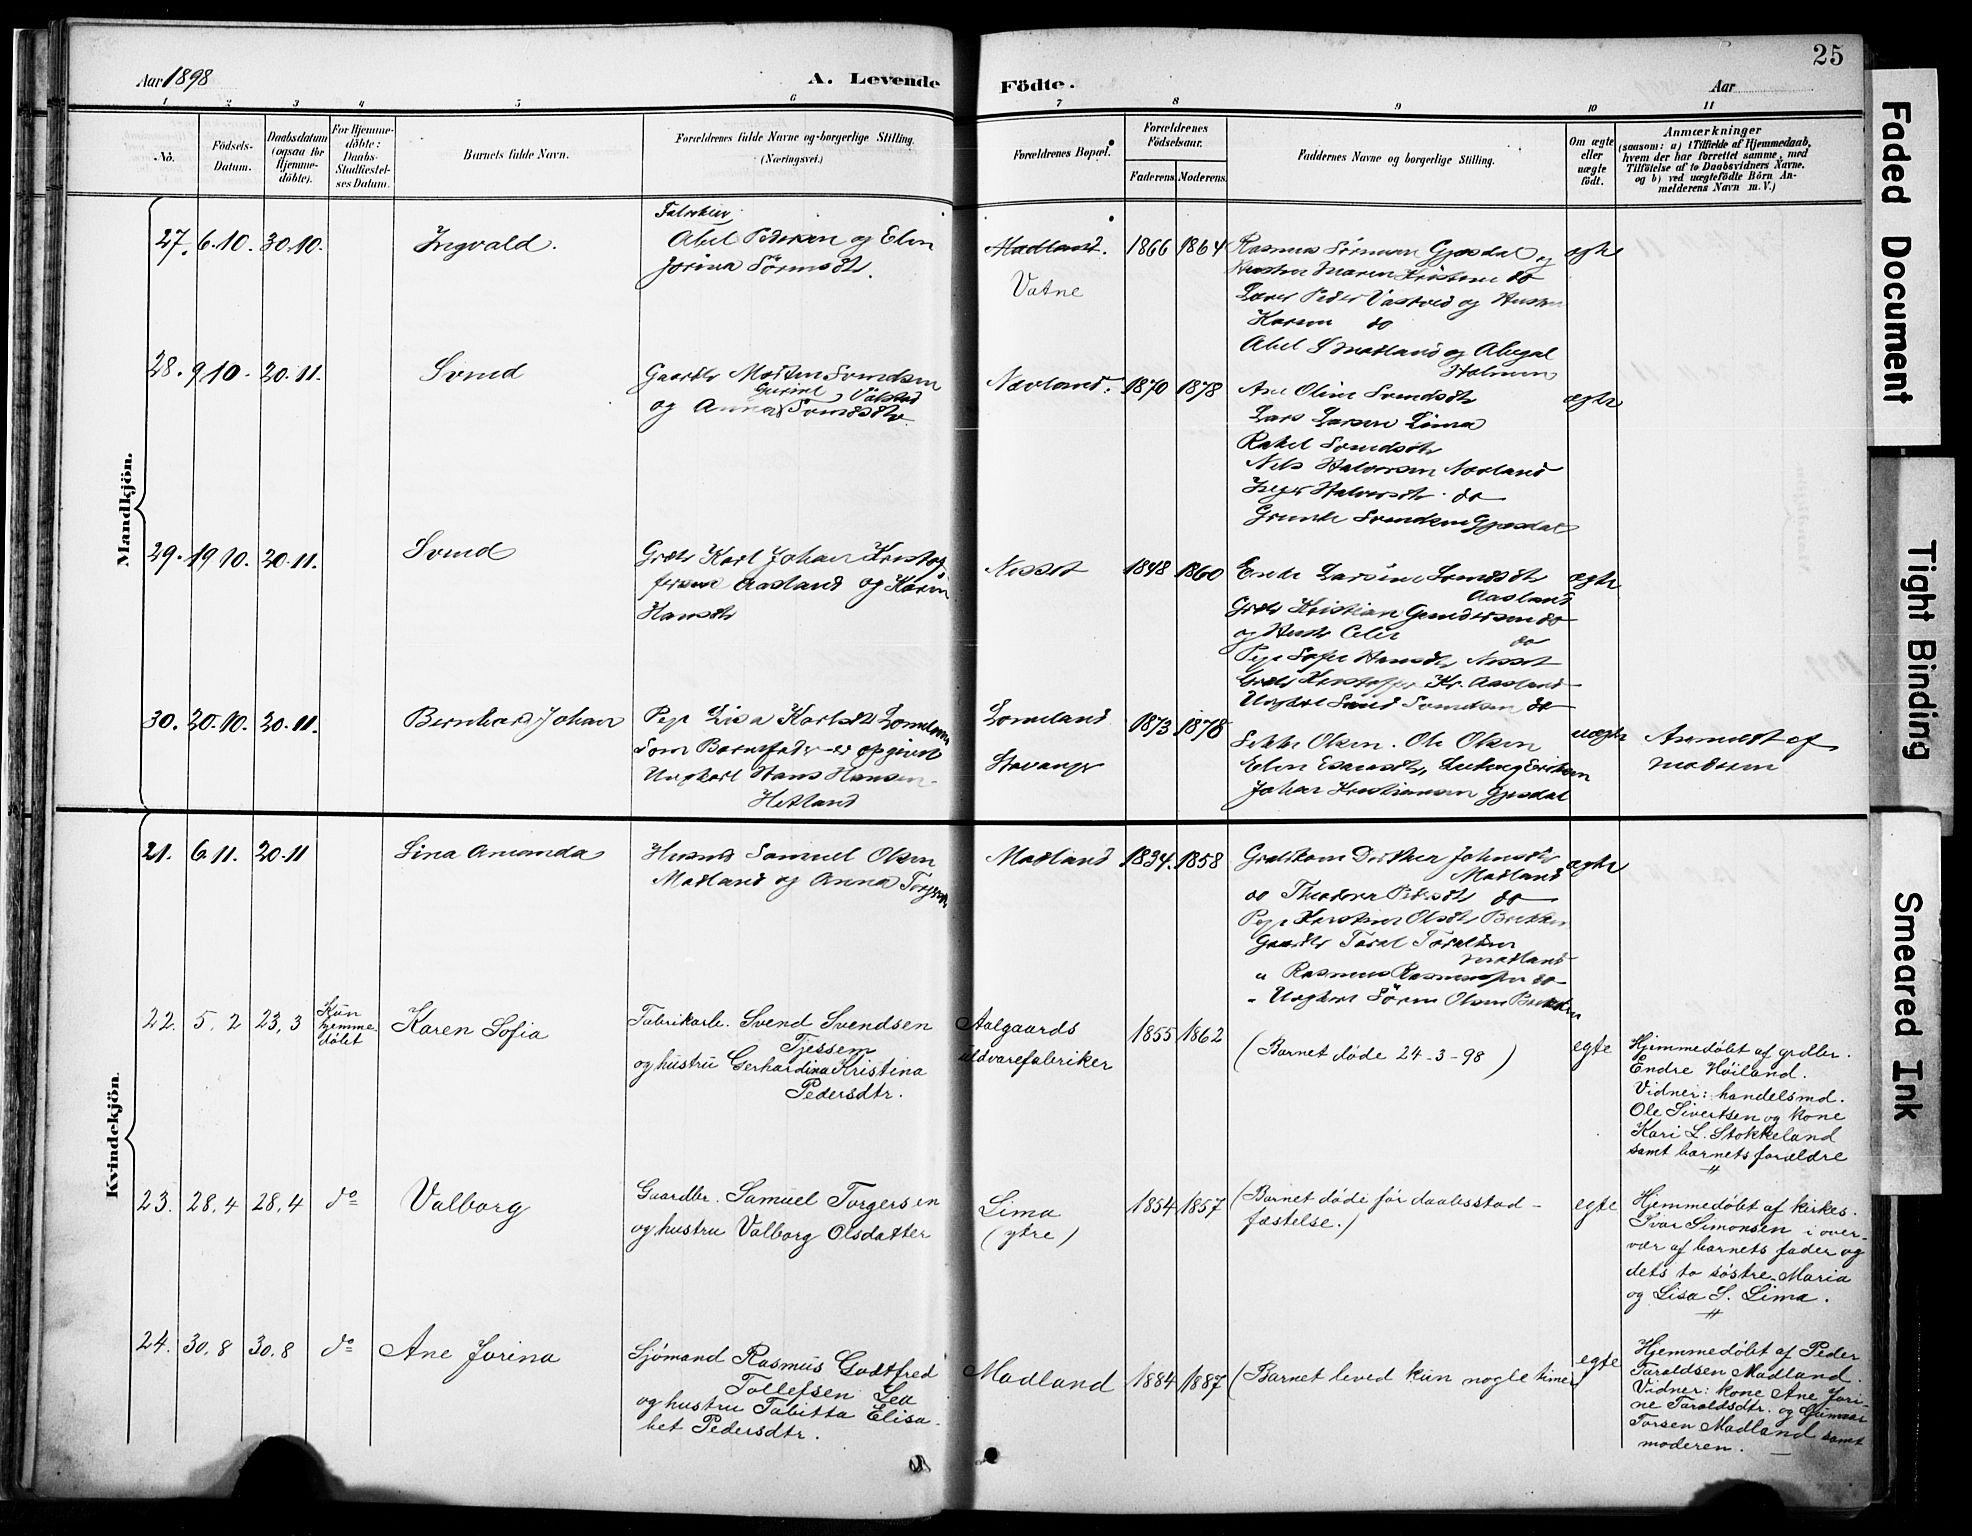 Aar 1898
A. Levende
Födte.
Aar
25
1 2 3 4 5 6 7 8 9 10 11
No.
Födsels-
Datum.
Daabsdatum
(ogsaa for
Hjemme-
döbte).
For Hjemme-
döbte:
Daabs-
Stadfæstel-
ses Datum.
Barnets fulde Navn.
Forældrenes fulde Navne og borgerlige Stilling.
(Næringsvei.)
Forældrenes Bopæl.
Forældrenes
Födselsaar.
Faderens
Moderens
Faddernes Navne og borgerlige Stilling.
Om ægte
eller
uægte
födt.
Anmærkninger
(saasom: a) i Tilfælde af Hjemmedaab,
hvem der har forrettet samme, med
Tilföielse af to Daabsvidners Navne,
og b) ved uægtefödte Börn An-
melderens Navn m. V.)
Mandkjön.
27. 6.10. 30.10.
Ingvald.
Abel Pedersen og Elen
Jorina Sörensdtr.
Madland.
Vatne
1866 1864
Rasmus Sörensen Gjesdal og
Hustru Maren Kristine do
Peder Vastved og Hustru
Karen do
Abel S Madland og Abegal
Holmen
ægte
28. 9.10. 20.11.
Svend
Gaardbr Morten Svendsen
og Anna Svendsdtr.
Nævland.
1870 1878
Ane Oline Svendsdtr
Lars Larsen Lima
Rakel Svendsdtr
Nils Halvorsen Nævland
Inger Halvorsdtr. do
Svendsen Gjesdal
ægte
29. 19.10. 20.11.
Svend
Grdbr Karl Johan Kristof
fersen Aasland og Karen
Hansdtr
Nesset
1848 1860
Larsine Svendsdtr
Aasland
Grdbr Kristian Gundersen do
og Hustr
do
Pige Sofie Hansdtr Nesset
Grdbr Kristoffer Kr. Aasland
Ungkarl Svend Svendsen do
ægte
30. 20.10. 20.11.
Bernhard Johan
Pige Lisa Karlsdtr
Som Barnefader er opgivet
Ungkarl Hans Hansen
Hetland
Stavanger
1873 1878
Olsen. Ole Olsen
Johan Kristiansen Gjesdal
uægte
Anmeldt af
moderen
Kvindekjön.
21. 6.11. 20.11
Lina Amanda
Husmd Samuel Olsen
Madland og Anna
Madland
1834. 1858
Johnsdtr
Madland
og Theodora Pedersdtr do
Pige Kirstine Olsdtr Brekken
Gaardbr Tarel Tareldsen
Madland
" Rasmus Rasmussen do
" Ungkarl Sören Olsen Brekken
ægte
22. 5.2 23.3
Kun
hjemme
döbt
Karen Sofia
Fabrikarb. Svend Svendsen
Tjessem
og hustru Gerhardina Kristina
Pedersdtr.
Aalgaards
uldvarefabriker
1855 1862
(Barnet döde 24-3-98)
egte
Hjemmedöbt af grdbr.
Endre Höiland.
Vidner: handelsmd.
Ole Sivertsen og kone
Kari L. Stokkeland
samt barnets forældre
"
23. 28.4 28.4 do
Valborg
Gaardbr. Samuel Torgersen
og hustru Valborg Olsdatter
Lima
(ytre)
1854 1857
(Barnet döde för daabsstad-
fæstelse.)
egte
Hjemmedöbt af kirkes.
Ivar Simonsen i over-
vær af barnets fader og
dets to söstre Maria
og Lisa S. Lima.
"
24. 30.8 30.8 do
Ane Jorina
Sjömand Rasmus Godtfred
Tollefsen Lea
og hustru Tabitta Elisa-
bet Pedersdtr.
Madland
1884 1887
(Barnet leved kun nogle timer)
egte
Hjemmedöbt af Peder
Taraldsen Madland.
Vidner: kone Ane Jori-
ne Taraldsdtr. og Gunnar
Torsen Madland samt
moderen.
Faded Document
Tight Binding
Smeared Ink